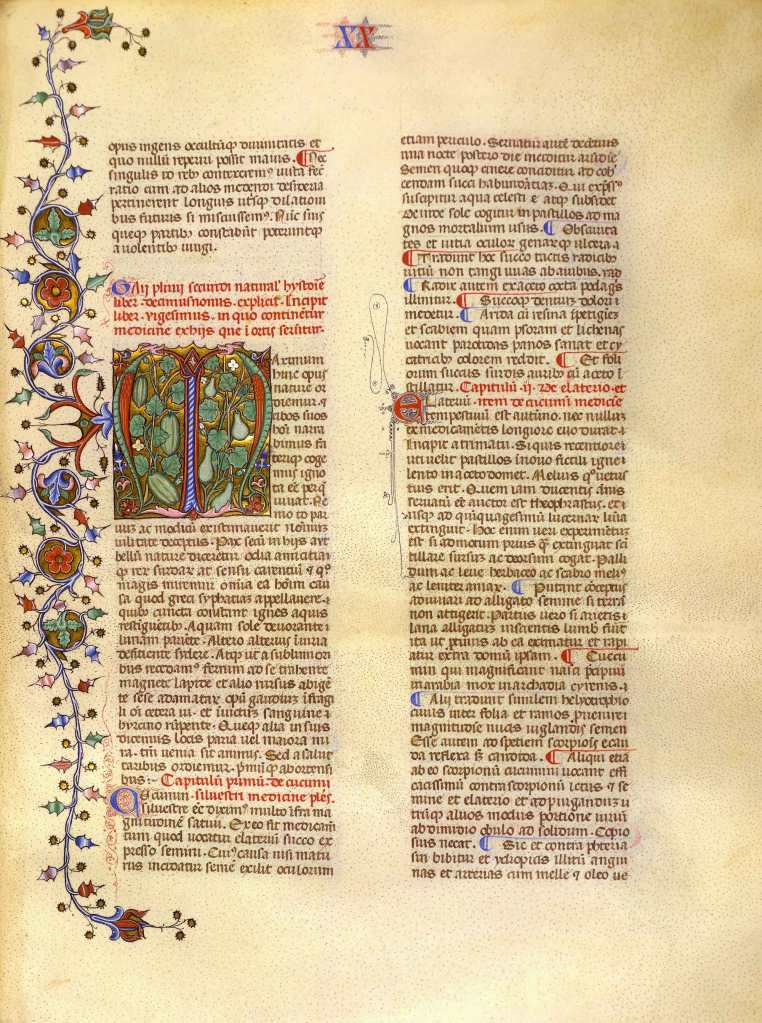 XX
opus ingens occultūq; diuinitatis et
quo nullū reperiri possit maius. Nec
singulis id reb; contexere m' uisū
ratio eum ad alios medendi desideria
pertinerent longius utrisq; dilatioīn
bus futuris si miscuissem'. Nūc sius
queq; partib; constabūt poterūntq;
a uolentib; iungi.
Gaij plinij secundi natural' hystorie
liber decimusnonus explicit. Incipit
liber uigesimus. in quo continētur
medicine ex hijs que ī ortis serūtur.
Maximum
hinc opus
nature or
diemur. ⁊
cibos suos
hoī narra
bimus fa
teriq; coge
mus igno
ta eē perq;
uiuat. Ne
mo id par
uum ac modicū existimauerit nominū
uilitate deceptus. Pax secū in hijs aut
bellū nature dicetur. odia amicitia
q; rer surdar ac sensu carentiū ⁊ q°
magis miremur omnia ea hoīm cau
sa quod greci syphatias appellauere.
quib; cuncta constant ignes aquis
restiguentib;. Aquam sole deuorante.
lunam pariēte. Altero alterius īiuria
deficiente sydere. Atq; ut a sublimiori
bus recedam'. ferrum ad se trahente
magnete lapide et alio rursus abigē
te sese adamantē
oī cetera ui. et inuictum sanguine
hyrcino rūpente. Queq; alia in suis
dicemus locis paria uel maiora mi
ra. tm̄ uenia sit animus. Sed a salut
taribus ordiemur. p̄miūq; ab ortensi
bus:- Capitulū primū. de cucumi
silvestri medicine ples.
Cucumin
siluestrē eē dixim' multo īfra ma
gnitudinē satiui. Ex eo fit medicam̄
tum quod uocatur elateriū succo ex
presso semini. Cui' causa nisi matu
rius incidatur semē exilit oculorum
etiam periculo. Seruatū autē decerptus
una nocte postero die inciditur arūdie
Semen quoq; cinere conditur ad coh'
cendam succi habundātiaz. Qui exp̄ss'
suscipitur aqua celesti ⁊ atq; subsidet
Deinde sole cogitur in pastillos ad ma
gnos mortalium usus. Obscurita
tes et uitia oculor genarq; ulcera.
Tradunt hoc succo tactis radicib;
uitiū non tangi uuas ab auibus. rad
Radix autem ex aceto cocta podagis
illinitur. Succoq; dentiū dolori
medetur. Arida cū resina īpetigies
et scabiem quam psoram et lichenas
uocant parotidas panos sanat et cy
catricib; colorem reddit. Et foli
orum succus surdis aurib; cū aceto ī
stillatur. Capitulū ij. De elaterio. et
item de cucumī medicīe
Elateriū
tempestiuū est autūno. nec nullus
de medicamētis longiore euo durat.
Incipit a trimatu. Si quis recentiore
uti uelit pastillos ī nouo fictili igne
lento in aceto domet. Melius q° uetus
tius erit. Quem iam ducentis ānis
seruatū ee auctor est theophrastus. et
usq; ad quīquagesimū lucernar luīa
extinguit. Hoc enim ueri experimētū
est si admotum prius q̄ extinguat sci
tillare sursus ac deorsum cogat. Palli
dum ac leue herbaceo ac scabro meli'
ac leniter amax. Putant cōceptus
adiuuari ad alligato semine si terrā
non attigerit. Partus uero si arietis
lana alligatum inscientis lumb' fuit
ita ut protinus ab ea eximatur et rapi
atur extra domū ipsam. Cucu
min qui magnificant nasci p̄cipui
in arabia mox in archadia cyrenis.
Alij tradunt similem helyotrophio
cuius inter folia et ramos proueniē
magnitudīe nucis iuglandis semen
Esse autem ad spetiem scorpiōis cau
da reflexa s; candida. Aliqui etiā
ab eo scorpionū cucumīn uocant eff
cacissimū contra scorpionū ictus ⁊ se
mine et elaterio et ad purgandum u
trūq; aluos modus portione uiriū
ab dimidio obulo ad solidum. Copio
sius necat. Sic et contra phteria
sin bibitur et ydropicis illitū angin
nas et arterias cum melle ⁊ oleo ue